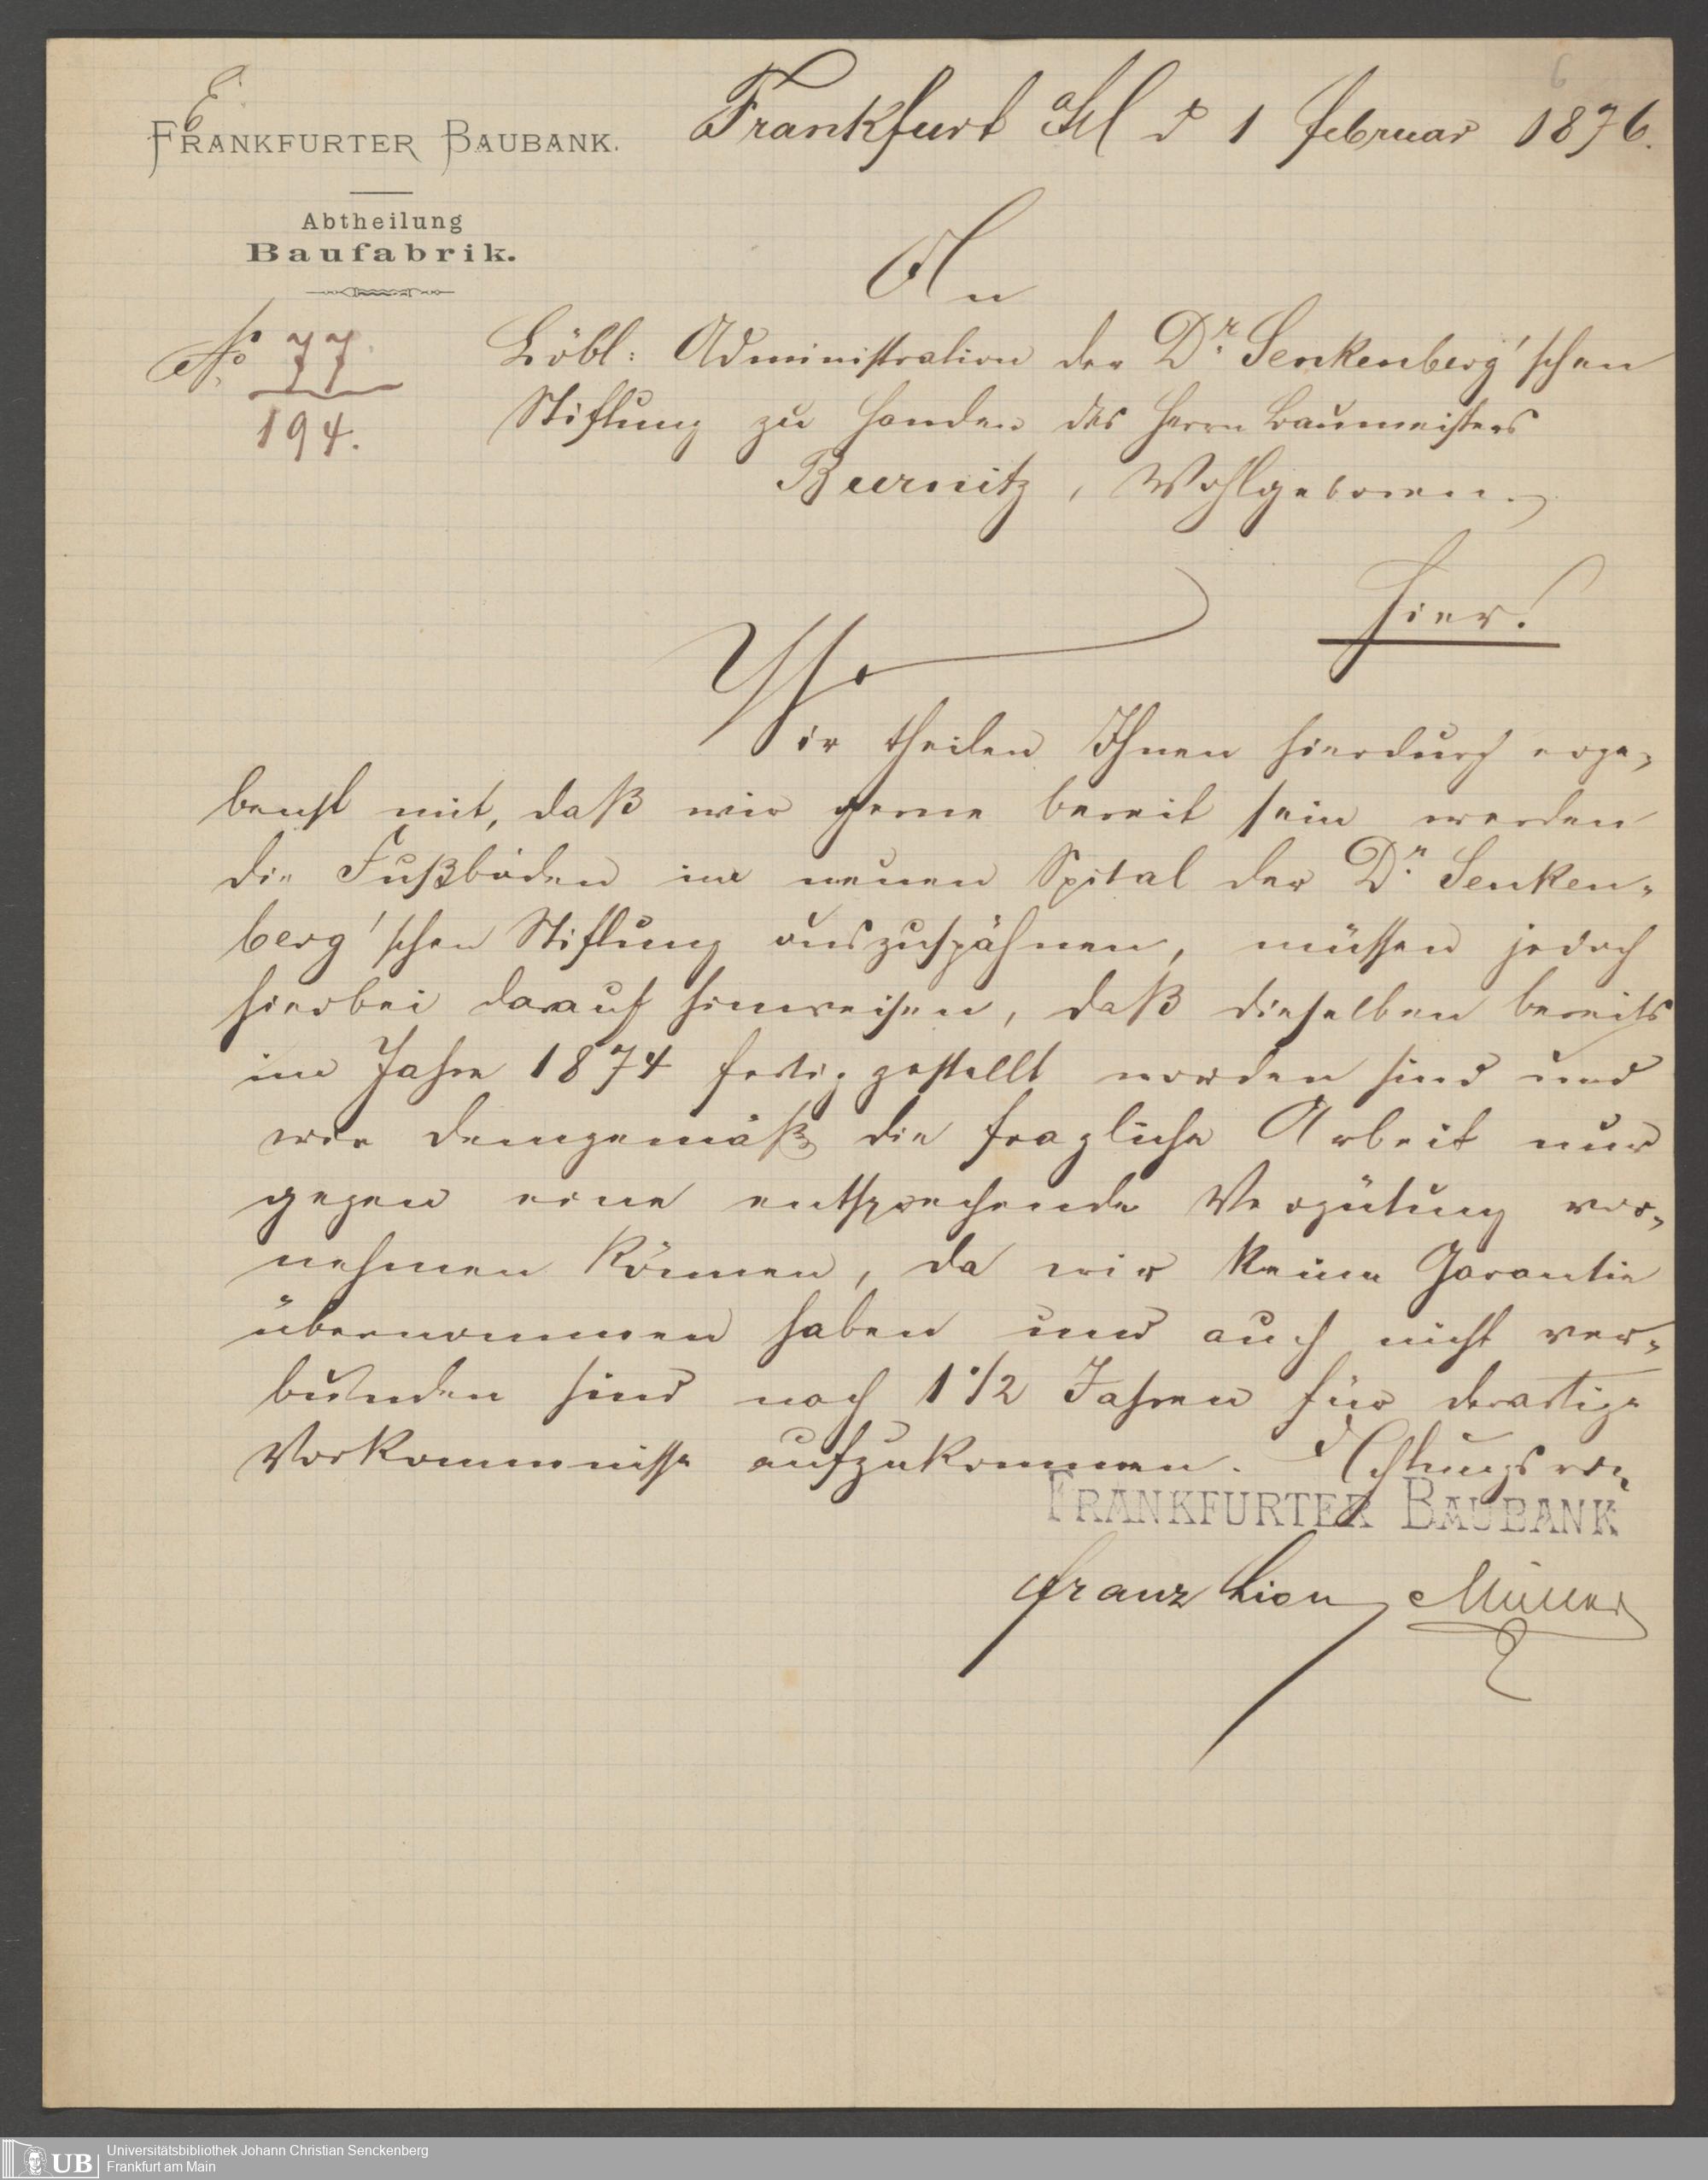 6
E
FRANKFURTER BAUBANK.
Frankfurt a/M d 1 Februar 1876.
Abtheilung
Baufabrik.
An
No 77
194.
Löbl: Administration der Dr. Senkenberg'schen
Stiftung zu Handen des Herrn Baumeisters
Burnitz, Wohlgeboren.
Hier!
Wir theilen Ihnen hierdurch erge-
benst mit, daß wir gerne bereit sein werden
die Fußböden im neuen Spital der Dr. Senken-
berg'schen Stiftung auszuspähnen, müssen jedoch
hierbei darauf hinweisen, daß dieselben bereits
im Jahre 1874 fertig gestellt worden sind und
wir demgemäß die fragliche Arbeit nur
gegen eine entsprechende Vergütung vor-
nehmen können, da wir keine Garantie
übernommen haben und auch nicht ver-
bunden sind nach 1 1/2 Jahren für derartige
Vorkommnisse aufzukommen. Achtungsvoll
FRANKFURTER BAUBANK
Franz Lion Müller
UB Universitätsbibliothek Johann Christian Senckenberg
Frankfurt am Main